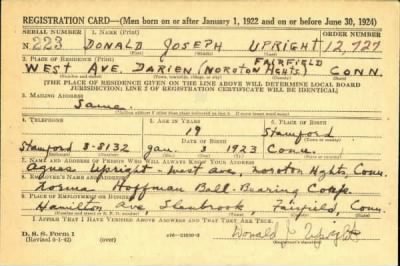 REGISTRATION CARD—(Men born on or after January 1, 1922 and on or before June 30, 1924)
SERIAL NUMBER 1. NAME (Print) ORDER NUMBER
N 223 DONALD JOSEPH UPRIGHT 12,727
2. PLACE OF RESIDENCE (Print) FAIRFIELD
WEST AVE. DARIEN (NOROTON HGHTS.) CONN.
[THE PLACE OF RESIDENCE GIVEN ON THE LINE ABOVE WILL DETERMINE LOCAL BOARD
JURISDICTION; LINE 2 OF REGISTRATION CERTIFICATE WILL BE IDENTICAL]
3. MAILING ADDRESS
Same
4. TELEPHONE 5. AGE IN YEARS 6. PLACE OF BIRTH
19 Stamford
DATE OF BIRTH
Stamford 3-8132 Jan. 3 1923 Conn.
7. NAME AND ADDRESS OF PERSON WHO WILL ALWAYS KNOW YOUR ADDRESS
Agnes Upright - West ave, Noroton Hghts, Conn.
8. EMPLOYER'S NAME AND ADDRESS
Norma Hoffman Ball-Bearing Comp.
9. PLACE OF EMPLOYMENT OR BUSINESS
Hamilton Ave, Fairfield, Conn.
I AFFIRM THAT I HAVE VERIFIED ABOVE ANSWERS AND THAT THEY ARE TRUE.
D. S. S. Form 1
(Revised 6-1-42) Donald J. Upright